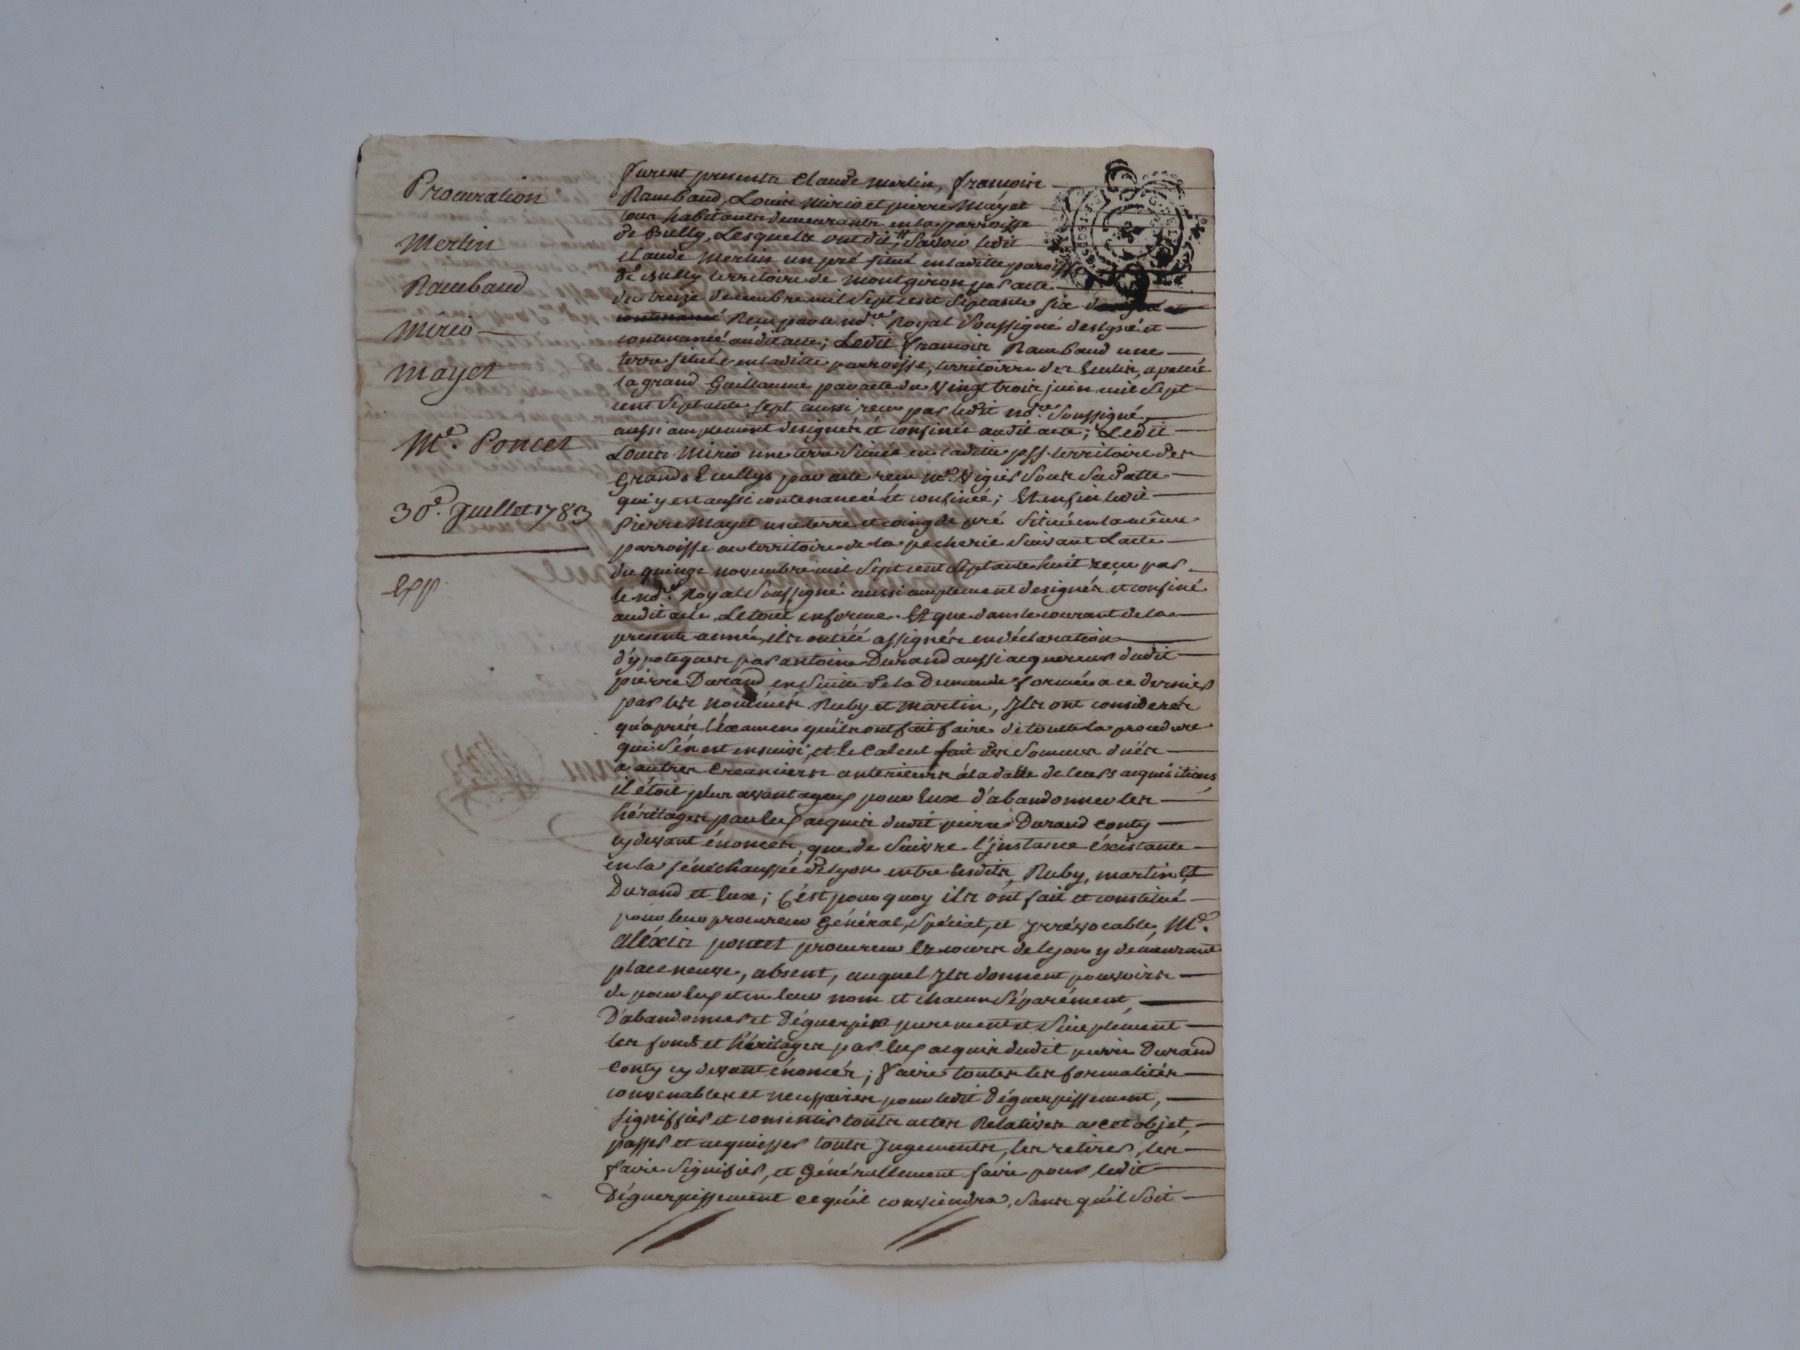 Procuration
Merlin
Rambaud
Mirio
mayet
Me. Poncet
30e. Juillet 1783
Exp.
furent presents Claude Merlin, françois
Rambaud, Louis Mirio et pierre Mayet
tous habitants demeurants en la parroisse
de Bully, Lesquels ont dit, Savoir ledit
Claude Merlin un pré situé en ladite paroisse
de Bully territoire de Montgiron par acte
du treize decembre mil Sept cent Septante six
Reçu par le nore. Royal Soussigné designé et
contenancé audit acte; Ledit françois Rambaud une
terre située en ladite parroisse, territoire des apellée
la grand Guillaume par acte du Vingt trois juin mil Sept
cent Septante Sept aussi reçu par ledit nore. Soussigné
aussi amplement designée et confinée audit acte; Ledit
Louis Mirio une terre Située en ladite pss. territoire des
Grands par acte reçu Me. Vigier Sous Sa datte
qui y est aussi contenancée et confinée; Et enfin ledit
Pierre Mayet une terre et coing de pré Situé en la même
parroisse au territoire de la pecherie Suivant L'acte
du quinze novembre mil Sept cent Septante huit reçu par
le nore. Royal Soussigné aussi amplement designée et confiné
audit acte Le tout en forme. Et que dans le courant de la
presente année, ils ont été assignés en déclaration
d'ypoteques par antoine Durand aussi acquereur dudit
pierre Durand en Suite de la Demande formée a ce dernier
par les nommés Ruby et martin, Ils ont considerés
qu'après l'éxamen qu'ils ont fait faire de toute la procedure
qui S'en est ensuivi, et le Calcul fait des Sommes duës
a autres Creanciers anterieurs à la datte de leurs acquisitions
il étoit plus avantageux pour Eux d'abandonner les
héritages par Eux acquis dudit pierre Durand Conty
cy devant énoncés, que de Suivre l'instance éxistante
en la sénéchaussée de Lyon entre lesdits Ruby, martin Et
Durand et Eux; C'est pourquoy ils ont fait et constitué
pour leur procureur Général, Spécial, et Irrévocable, Me.
Aléxis poncet procureur Es cours de Lyon y demeurant
place neuve, absent, auquel Ils donnent pouvoirs
de pour Eux et en leur nom et chacun Séparément
D'abandonner et Déguerpir purement et Simplement
les fonds et héritages par Eux acquis dudit pierre Durand
Conty cy devant énoncés; faire toutes les formalités
convenables et necessaires pour ledit Déguerpissement,
signiffier et consentir touts actes Rélatives a cet objet,
passer et acquiesser touts Jugements, les retirer, les
faire Signifier, et Générallement faire pour ledit
Déguerpissement ce qu'il conviendra, Sans qu'il Soit